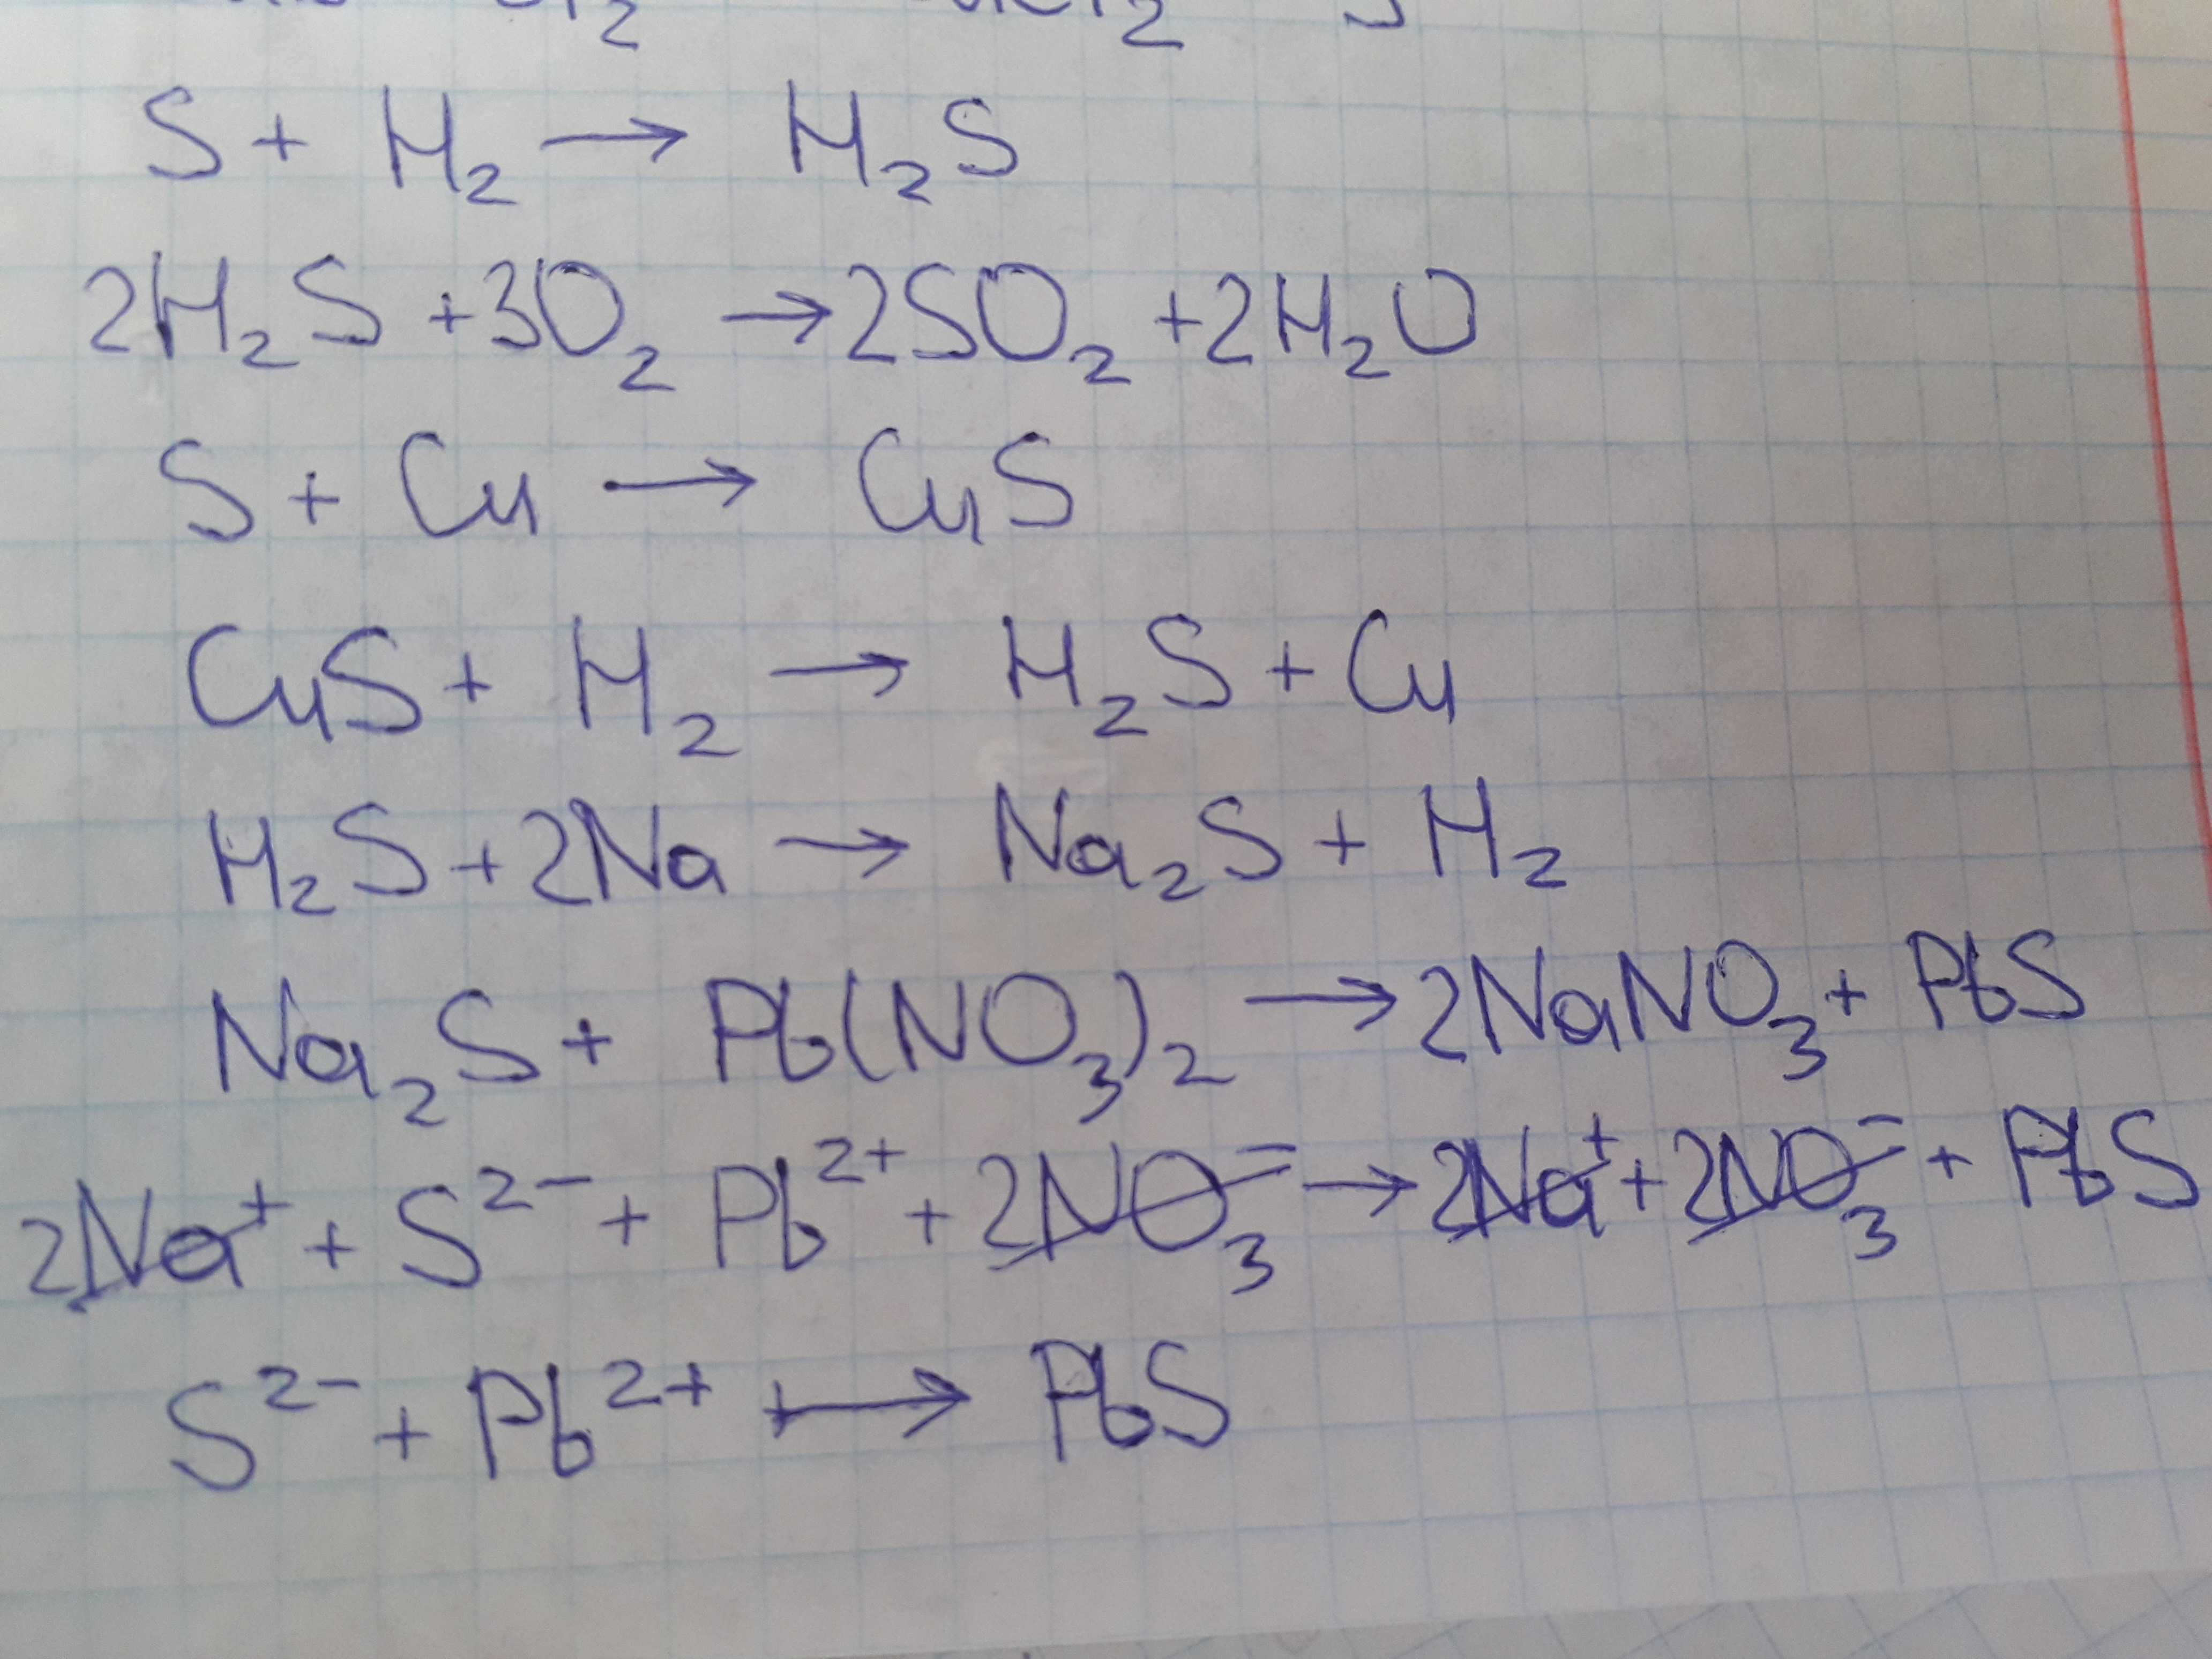 S + H₂ → H₂S
2H₂S + 3O₂ → 2SO₂ + 2H₂O
S + Cu → CuS
CuS + H₂ → H₂S + Cu
H₂S + 2Na → Na₂S + H₂
Na₂S + Pb(NO₃)₂ → 2NaNO₃ + PbS
2Na⁺ + S²⁻ + Pb²⁺ + 2NO₃⁻ → 2Na⁺ + 2NO₃⁻ + PbS
S²⁻ + Pb²⁺ → PbS